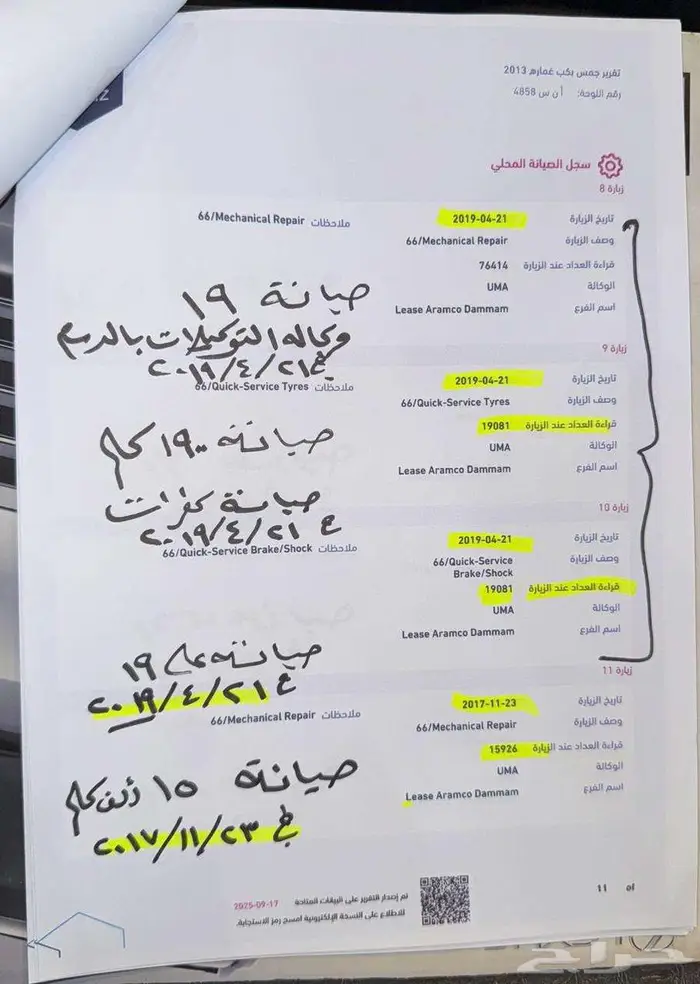 تقرير جمس بكب غمارة 2013
رقم اللوحة: أ ن س 4858
سجل الصيانة المحلي
زيارة 8
تاريخ الزيارة 2019-04-21 ملاحظات 66/Mechanical Repair
وصف الزيارة 66/Mechanical Repair
قراءة العداد عند الزيارة 76414
الوكالة UMA
اسم الفرع Lease Aramco Dammam
صيانة ١٩
وكاله التوكيلات بالدمام
٢٠١٩/٤/٢١
زيارة 9
تاريخ الزيارة 2019-04-21 ملاحظات 66/Quick-Service Tyres
وصف الزيارة 66/Quick-Service Tyres
قراءة العداد عند الزيارة 19081
الوكالة UMA
اسم الفرع Lease Aramco Dammam
صيانة ١٩٠٠ كلم
صيانة كفرات
ع ٢٠١٩/٤/٢١
زيارة 10
تاريخ الزيارة 2019-04-21 ملاحظات 66/Quick-Service Brake/Shock
وصف الزيارة 66/Quick-Service Brake/Shock
قراءة العداد عند الزيارة 19081
الوكالة UMA
اسم الفرع Lease Aramco Dammam
صيانة على ١٩
ع ٢٠١٩/٤/٢١
زيارة 11
تاريخ الزيارة 2017-11-23 ملاحظات 66/Mechanical Repair
وصف الزيارة 66/Mechanical Repair
قراءة العداد عند الزيارة 15926
الوكالة UMA
اسم الفرع Lease Aramco Dammam
صيانة ١٥ ألف كلم
في ٢٠١٧/١١/٢٣
تم إصدار التقرير على البيانات المتاحة 2025-09-17
للاطلاع على النسخة الإلكترونية امسح رمز الاستجابة.
11 of
حراج